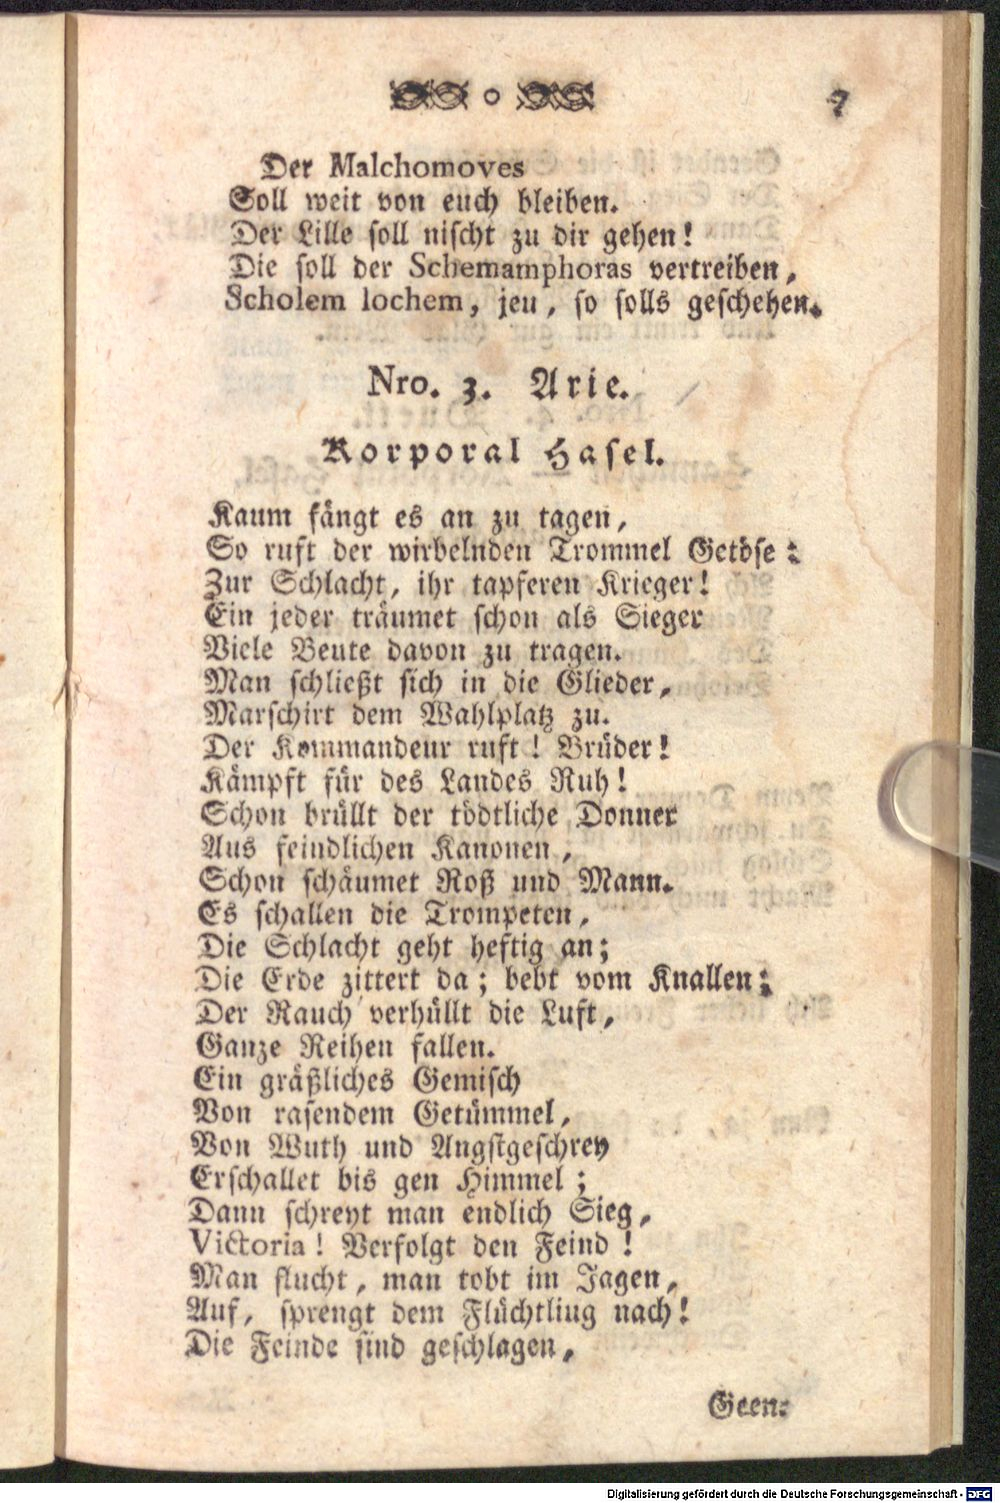 7
Der Malchomoves
Soll weit von euch bleiben.
Der Lille soll nischt zu dir gehen!
Die soll der Schemamphoras vertreiben,
Scholem lochem, jeu, so solls geschehen.
Nro. 3. Arie.
Korporal Hasel.
Kaum fängt es an zu tagen,
So ruft der wirbelnden Trommel Getöse:
Zur Schlacht, ihr tapferen Krieger!
Ein jeder träumet schon als Sieger
Viele Beute davon zu tragen.
Man schließt sich in die Glieder,
Marschirt dem Wahlplatz zu.
Der Kommandeur ruft! Brüder!
Kämpft für des Landes Ruh!
Schon brüllt der tödtliche Donner
Aus feindlichen Kanonen,
Schon schäumet Roß und Mann.
Es schallen die Trompeten,
Die Schlacht geht heftig an;
Die Erde zittert da; bebt vom Knallen;
Der Rauch verhüllt die Luft,
Ganze Reihen fallen.
Ein gräßliches Gemisch
Von rasendem Getümmel,
Von Wuth und Angstgeschrey
Erschallet bis gen Himmel;
Dann schreyt man endlich Sieg,
Victoria! Verfolgt den Feind!
Man flucht, man tobt im Jagen,
Auf, sprengt dem Flüchtling nach!
Die Feinde sind geschlagen,
Geen:
Digitalisierung gefördert durch die Deutsche Forschungsgemeinschaft - DFG